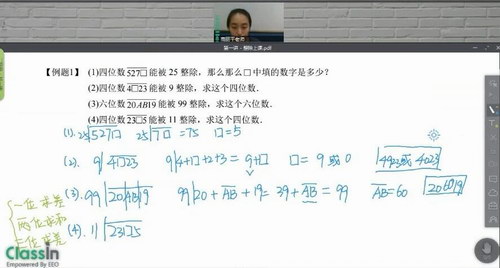 第一讲 - 整除上课.pdf
【例题1】 (1)四位数 527□ 能被 25 整除，那么那么□中填的数字是多少？
(2)四位数 4□23 能被 9 整除，求这个四位数．
(3)六位数 20AB19 能被 99 整除，求这个六位数．
(4)四位数 23□5 能被 11 整除，求这个四位数．
(1). 25|527□ 25|7□ =75 □=5
(2). 9|4□23 9|4+□+2+3=9+□ □=9或0 4923或4023
(3). 99|20AB19 99|20+AB+19=39+AB=99 AB=60 206019
(4). 11|23□5
一位求差
两位求和
三位求差
ClassIn
Empowered By EEO